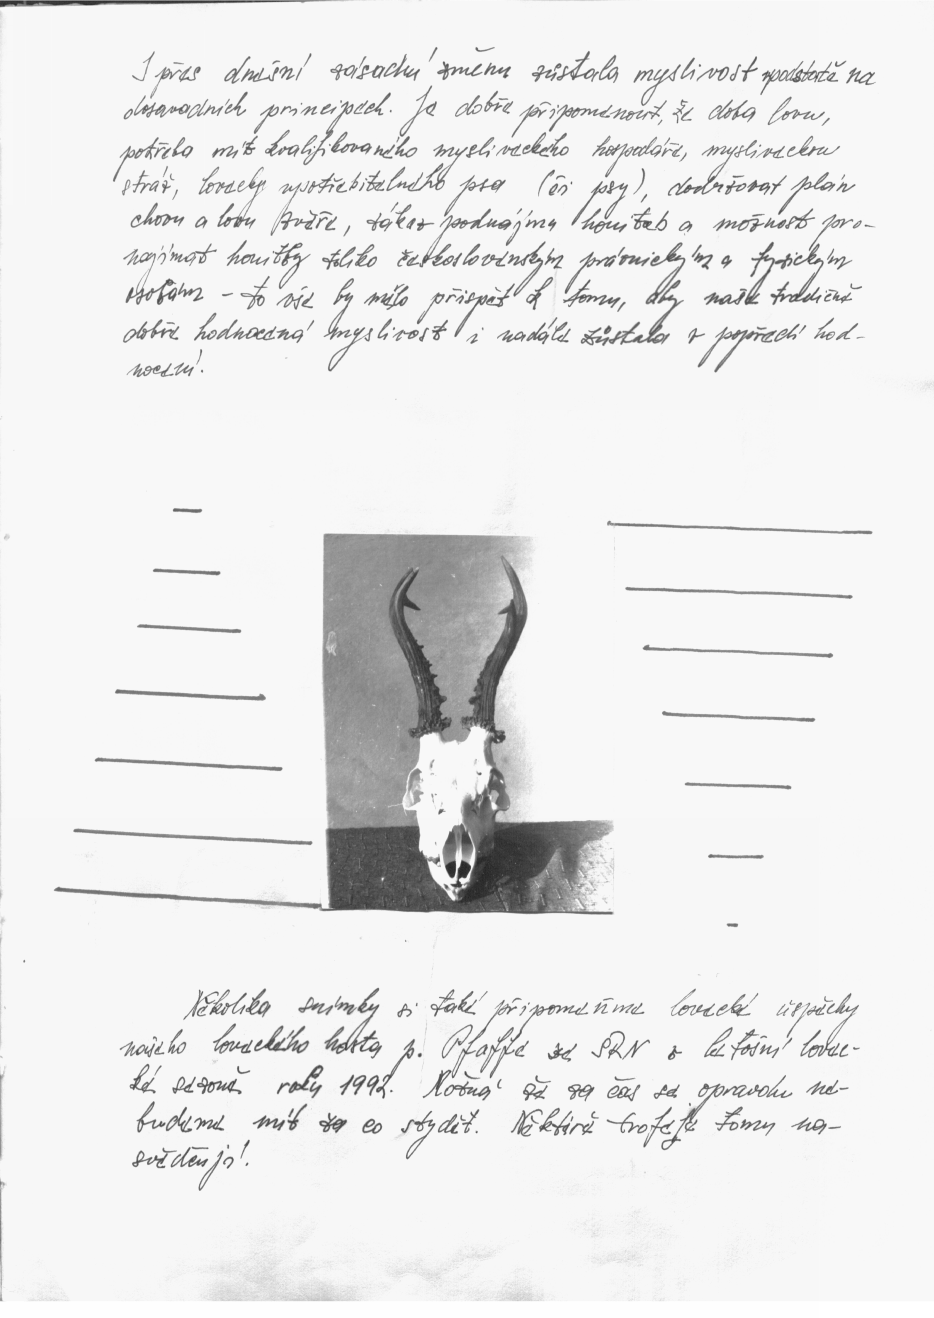 I přes dnešní zásadní změnu zůstala myslivost v podstatě na
dosavadních principech. Je dobře připomenout, že doba lovu,
potřeba mít kvalifikovaného mysliveckého hospodáře, mysliveckou
stráž, lovecky upotřebitelného psa (či psy), dodržovat plán
chovu a lovu zvěře, zákaz podnájmu honiteb a možnost pro-
najímat honitby toliko československým právnickým a fyzickým
osobám – to vše by mělo přispět k tomu, aby naše tradičně
dobře hodnocená myslivost i nadále zůstala v popředí hod-
nocení.
Několika snímky si také připomeňme lovecké úspěchy
našeho loveckého hosta p. Pfaffe ze SRN z letošní lovec-
ké sezoně roku 1992. Možná že za čas se opravdu ne-
budeme mít za co stydět. Některé trofeje tomu na-
svědčují.